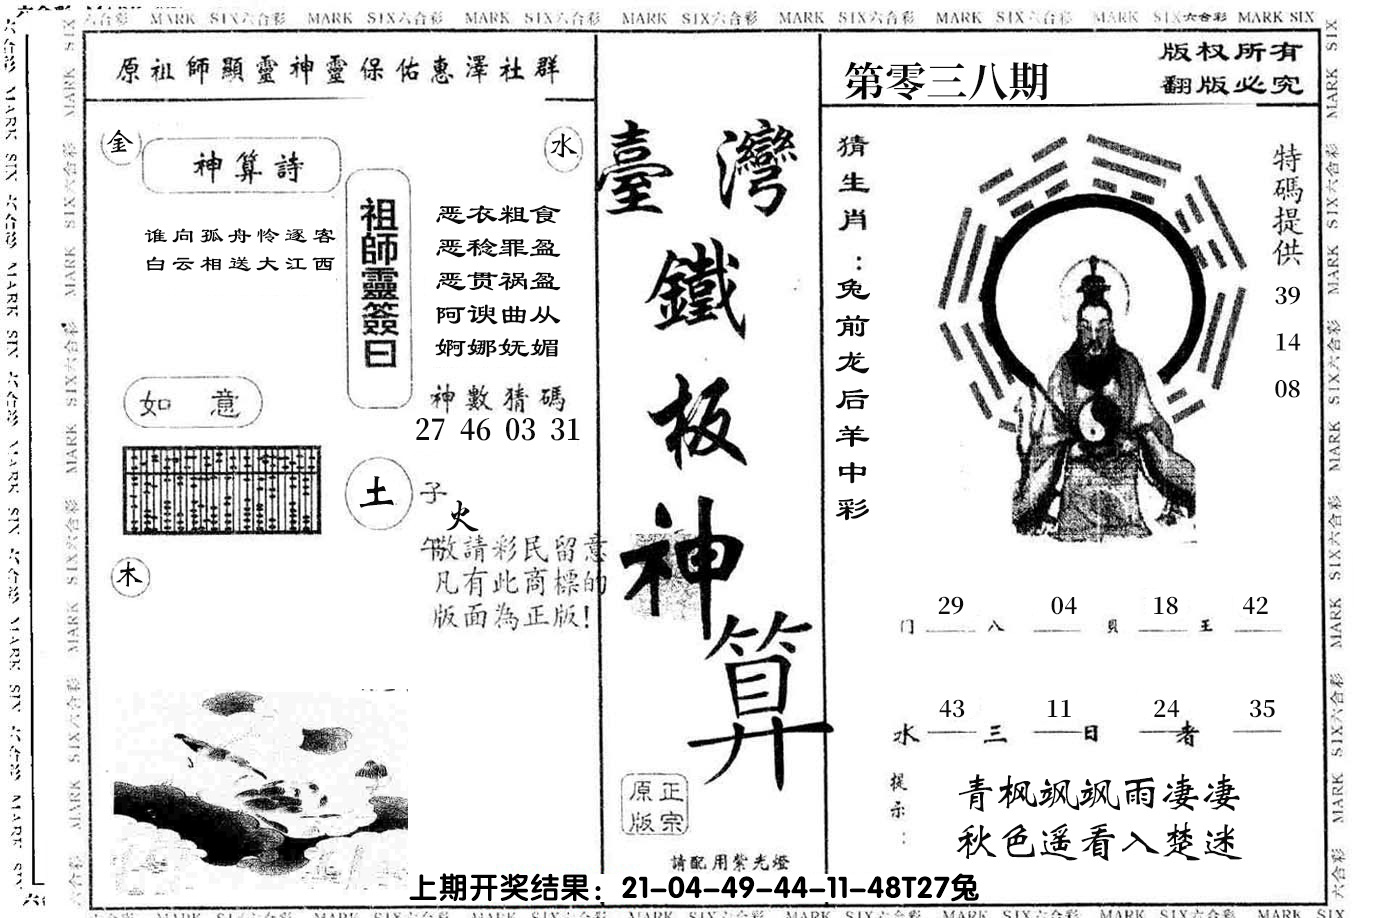 MARK SIX六合彩 MARK SIX六合彩 MARK SIX六合彩 MARK SIX六合彩 MARK SIX六合彩 MARK SIX六合彩 MARK SIX六合彩 MARK SIX
原祖師顯靈神靈保佑惠澤社群
金
神算詩
水
谁向孤舟怜逐客
白云相送大江西
祖師靈簽曰
恶衣粗食
恶稔罪盈
恶贯祸盈
阿谀曲从
婀娜妩媚
神數猜碼
27 46 03 31
如意
土
子
火
午
敬請彩民留意
凡有此商標的
版面為正版!
木
臺灣
鐵
板
神
算
正宗
原版
請配用紫光燈
第零三八期
版权所有
翻版必究
猜生肖:兔前龙后羊中彩
特碼提供
39
14
08
29 04 18 42
门 八 貝 王
43 11 24 35
水 三 日 者
提示:
青枫飒飒雨凄凄
秋色遥看入楚迷
上期开奖结果：21-04-49-44-11-48T27兔